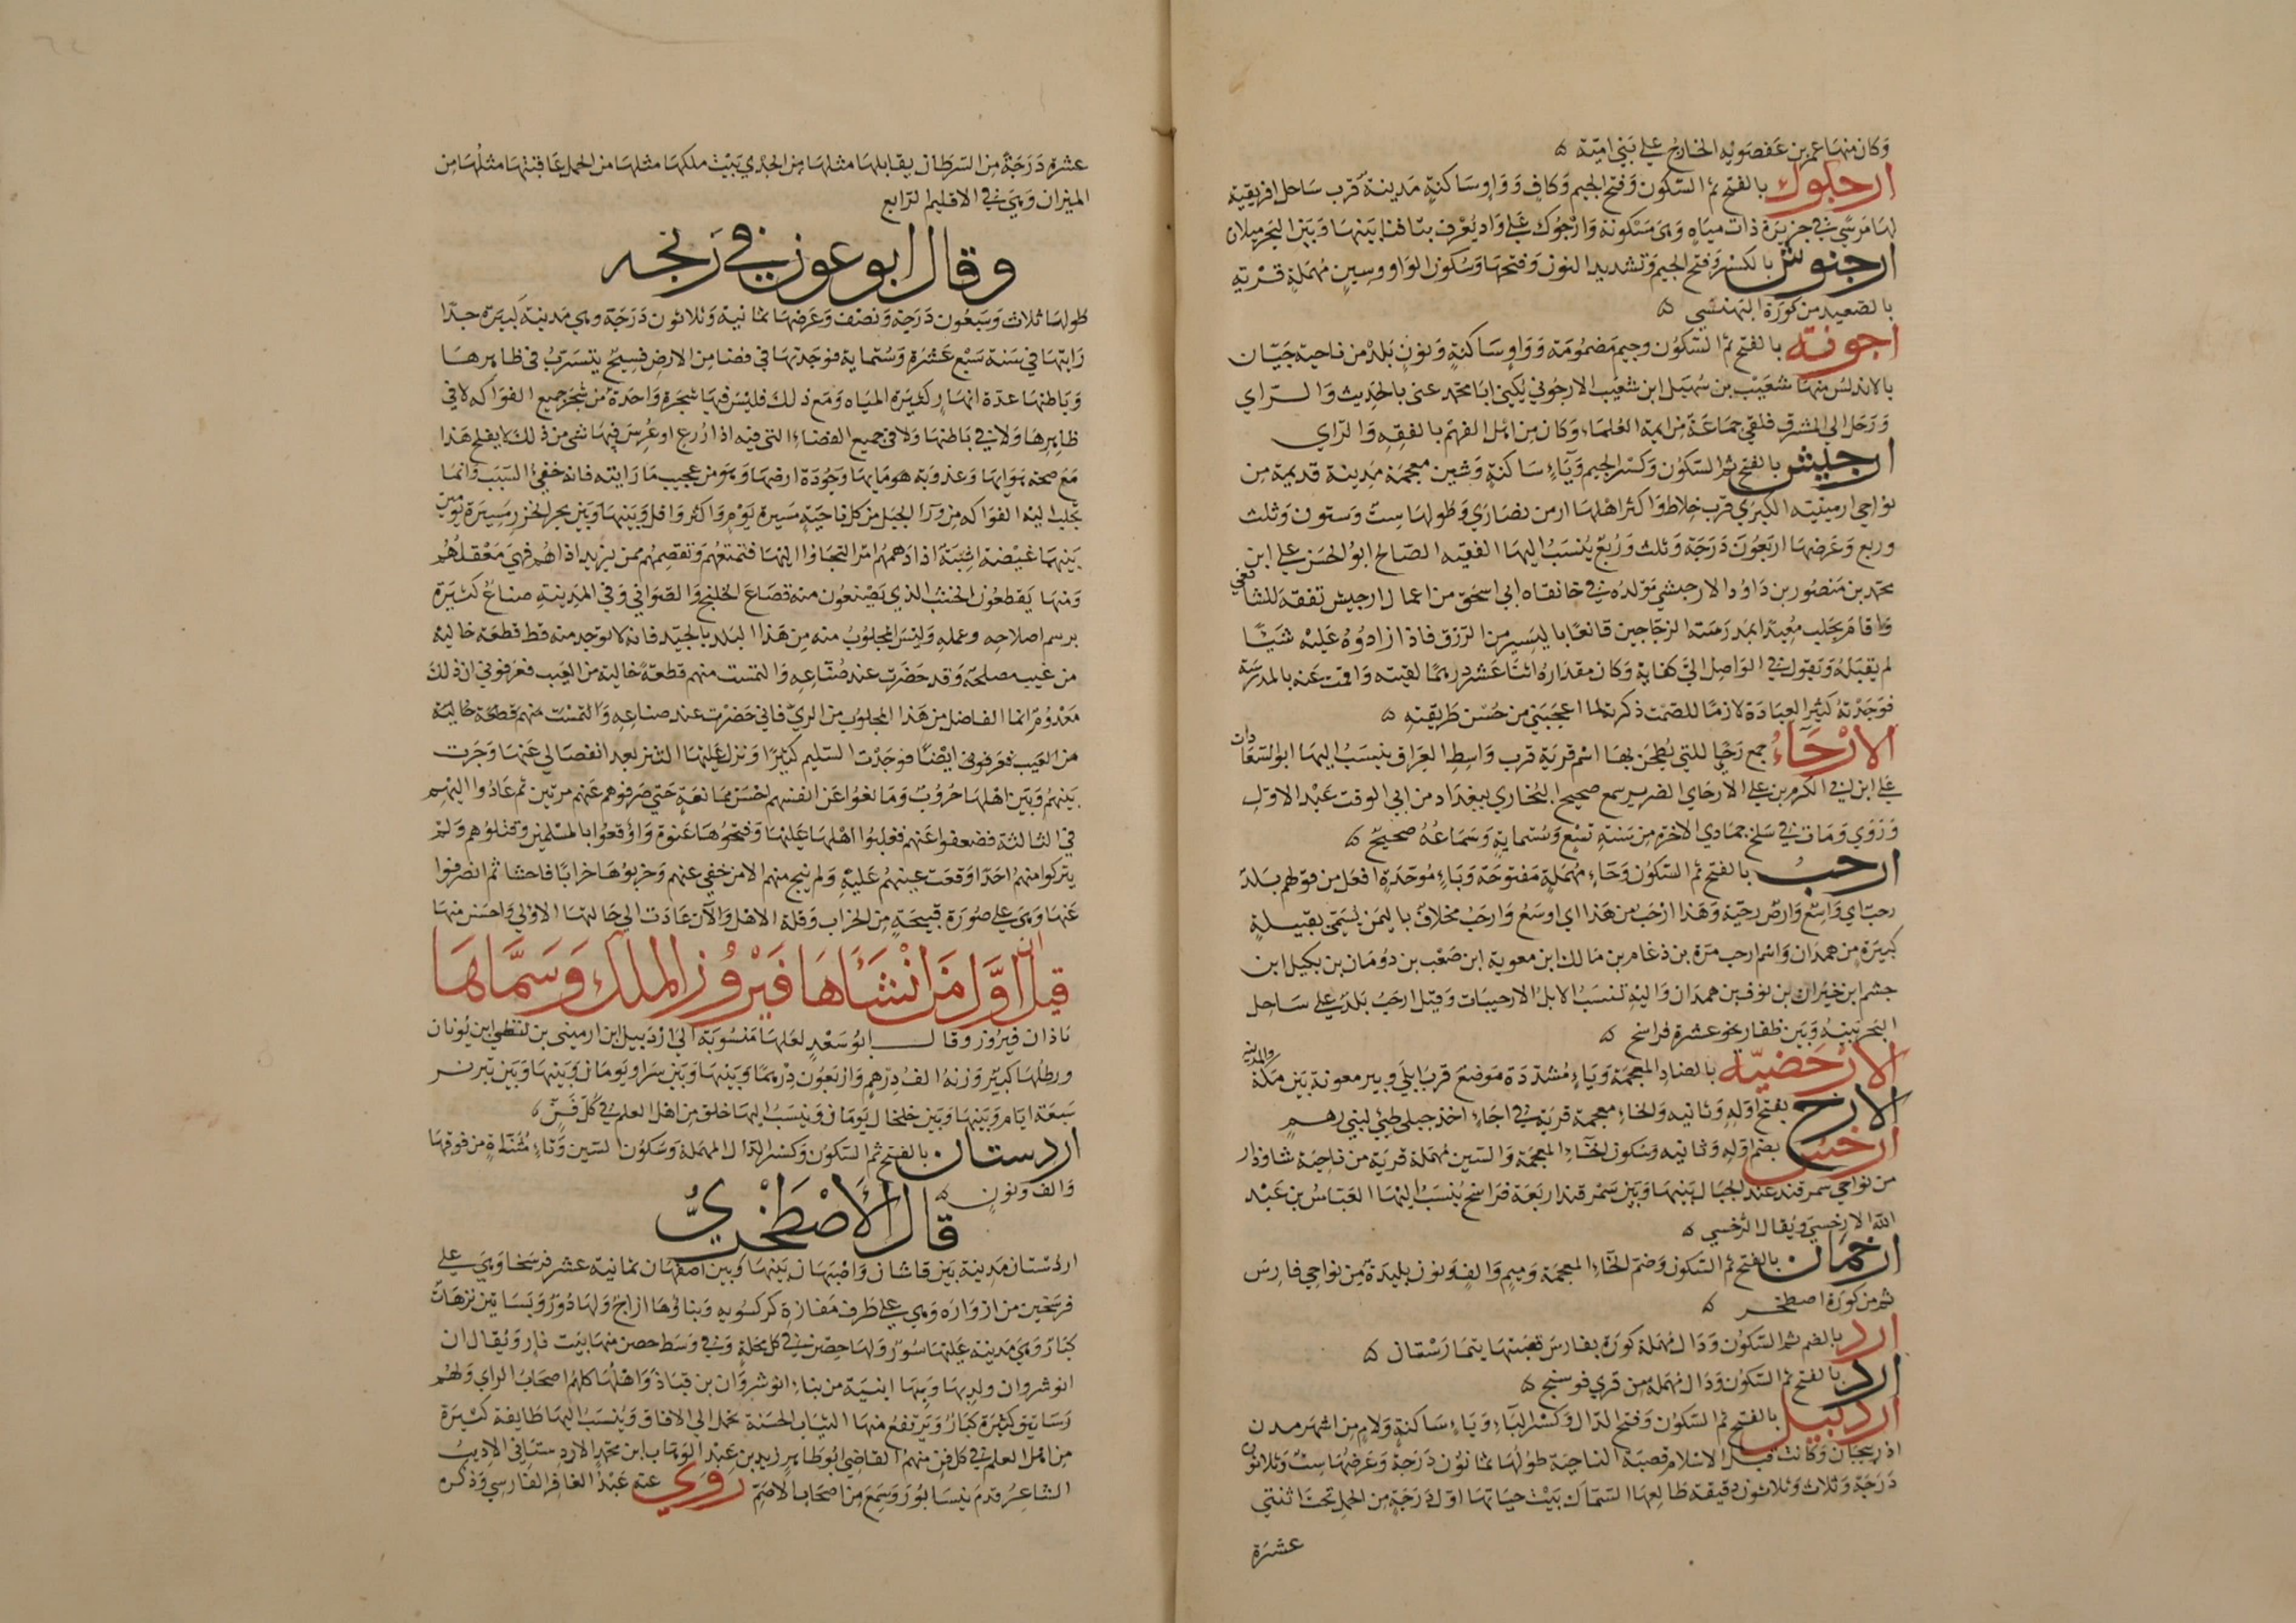 وكان منها عمر بن عفصويه الخارج على بني امية
ارجكوك بالفتح ثم السكون وفتح الجيم وكاف وواو ساكنة مدينة قرب ساحل افريقية
لها مرسى في جزيرة ذات مياه وهي مسكونة وارجوك على واد يعرف بتافنا بينها وبين البحر ميلان
ارجنوش بالكسر وفتح الجيم وتشديد النون وفتحها وسكون الواو وسين مهملة قرية
بالصعيد من كورة البهنسى
ارجونه بالفتح ثم السكون وجيم مضمومة وواو ساكنة ونون بلد من ناحية جيان
بالاندلس منها شعيب بن سهيل ابن شعيب الارجوني يكنى ابا محمد عنى بالحديث والراي
ورحل الى المشرق فلقي جماعة من ايمة العلماء وكان من اهل الفهم بالفقه والراي
ارجيش بالفتح ثم السكون وكسر الجيم وياء ساكنة وشين معجمة مدينة قديمة من
نواحي ارمينية الكبرى قرب خلاط واكثر اهلها ارمن نصارى وطولها ست وستون وثلث
وربع وعرضها اربعون درجة وثلث وربع ينسب اليها الفقيه الصالح ابو الحسن علي ابن
محمد بن منصور بن داود الارجيشي مولده في خانقاه ابي اسحق من اعمال ارجيش تفقه للشافعي
واقام بحلب معيدا بمدرسة الزجاجين قانعا باليسير من الرزق فاذا زادوه عليه شيئا
لم يقبله ويقول في الواصل الى كفاية وكان مقداره اثنا عشر درهما لقيته واقمت عنه بالمدرسة
فوجدته كثير العبادة لازما للصمت ذكرته لما اعجبني من حسن طريقته
الارحاء جمع رحى التي يطحن بها اسم قرية قرب واسط العراق ينسب اليها ابو السعادات
علي ابن ابي الكرم بن علي الارحاي الضرير سمع صحيح البخاري ببغداد من ابي الوقت عبد الاول
وروى ومات في سلخ جمادى الاخرة من سنة تسع وستماية وسماعه صحيح
ارحب بالفتح ثم السكون وحاء مهملة مفتوحة وباء موحدة افعل من قولهم بلد
رحب اي واسع وارض رحبة وهذا ارحب من هذا اي اوسع وارحب مخلاف باليمن يسمى بقبيلة
كبيرة من همدان واسم ارحب مرة بن دعام بن مالك ابن معوية ابن صعب بن دومان بن بكيل ابن
جشم ابن خيران بن نوف بن همدان واليه تنسب الابل الارحبيات وقيل ارحب بلد على ساحل
البحر بينه وبين ظفار نحو عشرة فراسخ
الارحضية بالضاد المعجمة وياء مشددة موضع قرب ابلى وبير معونة بين مكة والمدينه
الارخ بفتح اوله وثانيه والخاء معجمة قرية في اجاء احد جبلي طيئ لبني رهم
ارخس بضم اوله وثانيه وسكون الخاء المعجمة والسين مهملة قرية من ناحية شاوذار
من نواحي سمرقند عند الجبال بينها وبين سمرقند اربعة فراسخ ينسب اليها العباس بن عبد
الله الارخسي ويقال الرخسي
ارخمان بالفتح ثم السكون وضم الخاء المعجمة وميم والف ونون بليدة من نواحي فارس
ثم من كورة اصطخر
ارد بالضم ثم السكون ودال مهملة كورة بفارس قصبتها يتمارستان
ارد بالفتح ثم السكون ودال مهملة من قرى فوسنج
اردبيل بالفتح ثم السكون وفتح الدال وكسر الباء وياء ساكنة ولام من اشهر مدن
اذربيجان وكانت قبل الاسلام قصبة الناحية طولها ثمانون درجة وعرضها ست وثلاثون
درجة وثلاث وثلاثون دقيقة طالعها السماك بيت حياتها اول درجة من الحمل تحت اثنتي
عشرة
عشرة درجة من السرطان يقابلها مثلها من الجدي بيت ملكها مثلها من الحمل عاقبتها مثلها من
الميزان وهي في الاقليم الرابع
وقال ابو عون في زيجه
طولها ثلاث وسبعون درجة ونصف وعرضها ثمانية وثلاثون درجة وهي مدينة كبيرة جدا
رايتها في سنة سبع عشرة وستماية فوجدتها في فضا من الارض فسيح يتسرب في ظاهرها
وباطنها عدة انهار كثيرة المياه ومع ذلك فليس فيها شجرة واحدة من شجر جميع الفواكه لا في
ظاهرها ولا في باطنها ولا في جميع الفضاء التي فيه اذا زرع او غرس فيها شي من ذلك لا يفلح هذا
مع صحة هوايها وعذوبة هومايها وجودة ارضها وهو من عجيب ما رايته فانه خفي السبب وانما
تجلب اليه الفواكه من ورآ الجبل من كل ناحية مسيرة يوم واكثر واقل وبينها وبين بحر الخزر مسيرة يومين
بينهما غيضة اشبة اذا دهمهم امر التجاوا اليها فتمنعهم وتعصمهم ممن يريد اذاهم فهي معقلهم
ومنها يقطعون الخشب الذي يصنعون منه قصاع الخلنج والصواني وفي المدينة صناع كثيرة
برسم اصلاحه وعمله وليس المجلوب منه من هذا البلد بالجيد فانه لا توجد منه قط قطعة خالية
من عيب مصلحة وقد حضرت عند صناعه والتمست منهم قطعة خالية من العيب فعرفوني ان ذلك
معدوم انما الفاضل من هذا المجلوب من الري فاني حضرت عند صناعه والتمست منهم قطعة خالية
من العيب فعرفوني ايضا فوجدت السليم كثيرا ونزل عليها التتر بعد انفصالي عنها وجرت
بينهم وبين اهلها حروب ومانعوا عن انفسهم احسن ممانعة حتى صرفوهم عنهم مرتين ثم عادوا اليهم
في الثالثة فضعفوا عنهم فغلبوا اهلها عليها وفتحوها عنوة واوقعوا بالمسلمين وقتلوهم ولم
يتركوا منهم احدا وقعت عينهم عليه ولم ينج منهم الا من خفي عنهم وخربوها خرابا فاحشا ثم انصرفوا
عنها وهي على صورة قبيحة من الخراب وقلة الاهل والآن عادت الى حالتها الاولى واحسن منها
قيل ان اول من انشاها فيروز الملك وسماها
باذان فيروز وقال ابو سعد لعلها منسوبة الى اردبيل ابن ارميني بن لنطي ابن يونان
ورطلها كبير وزنه الف درهم واربعون درهما وبينها وبين سراو يومان وبينها وبين تبريز
سبعة ايام وبينها وبين خلخال يومان وينسب اليها خلق من اهل العلم في كل فن
اردستان بالفتح ثم السكون وكسر الدال المهملة وسكون السين وتاء مثناة من فوقها
والف ونون
قال الاصطخري
اردستان مدينة بين قاشان واصبهان بينها وبين اصفهان ثمانية عشر فرسخا وهي على
فرسخين من ازواره وهي على طرف مفازة كركسويه وبناؤها ازاج ولها دور وبساتين نزهات
كبار وهي مدينة عليها سور ولها حصن في كل محلة وفي وسط حصن منها بيت نار ويقال ان
انوشروان ولد بها وبها ابنية من بناء انوشروان بن قباذ واهلها كلهم اصحاب الراي ولهم
رساتيق كثيرة كبار ويرتفع منها الثياب الحسنة تحمل الى الافاق وينسب اليها طايفة كثيرة
من اهل العلم في كل فن منهم القاضي ابو طاهر زيد بن عبد الوهاب ابن محمد الاردستاني الاديب
الشاعر قدم نيسابور وسمع من اصحاب الاصم روى عنه عبد الغافر الفارسي وذكره